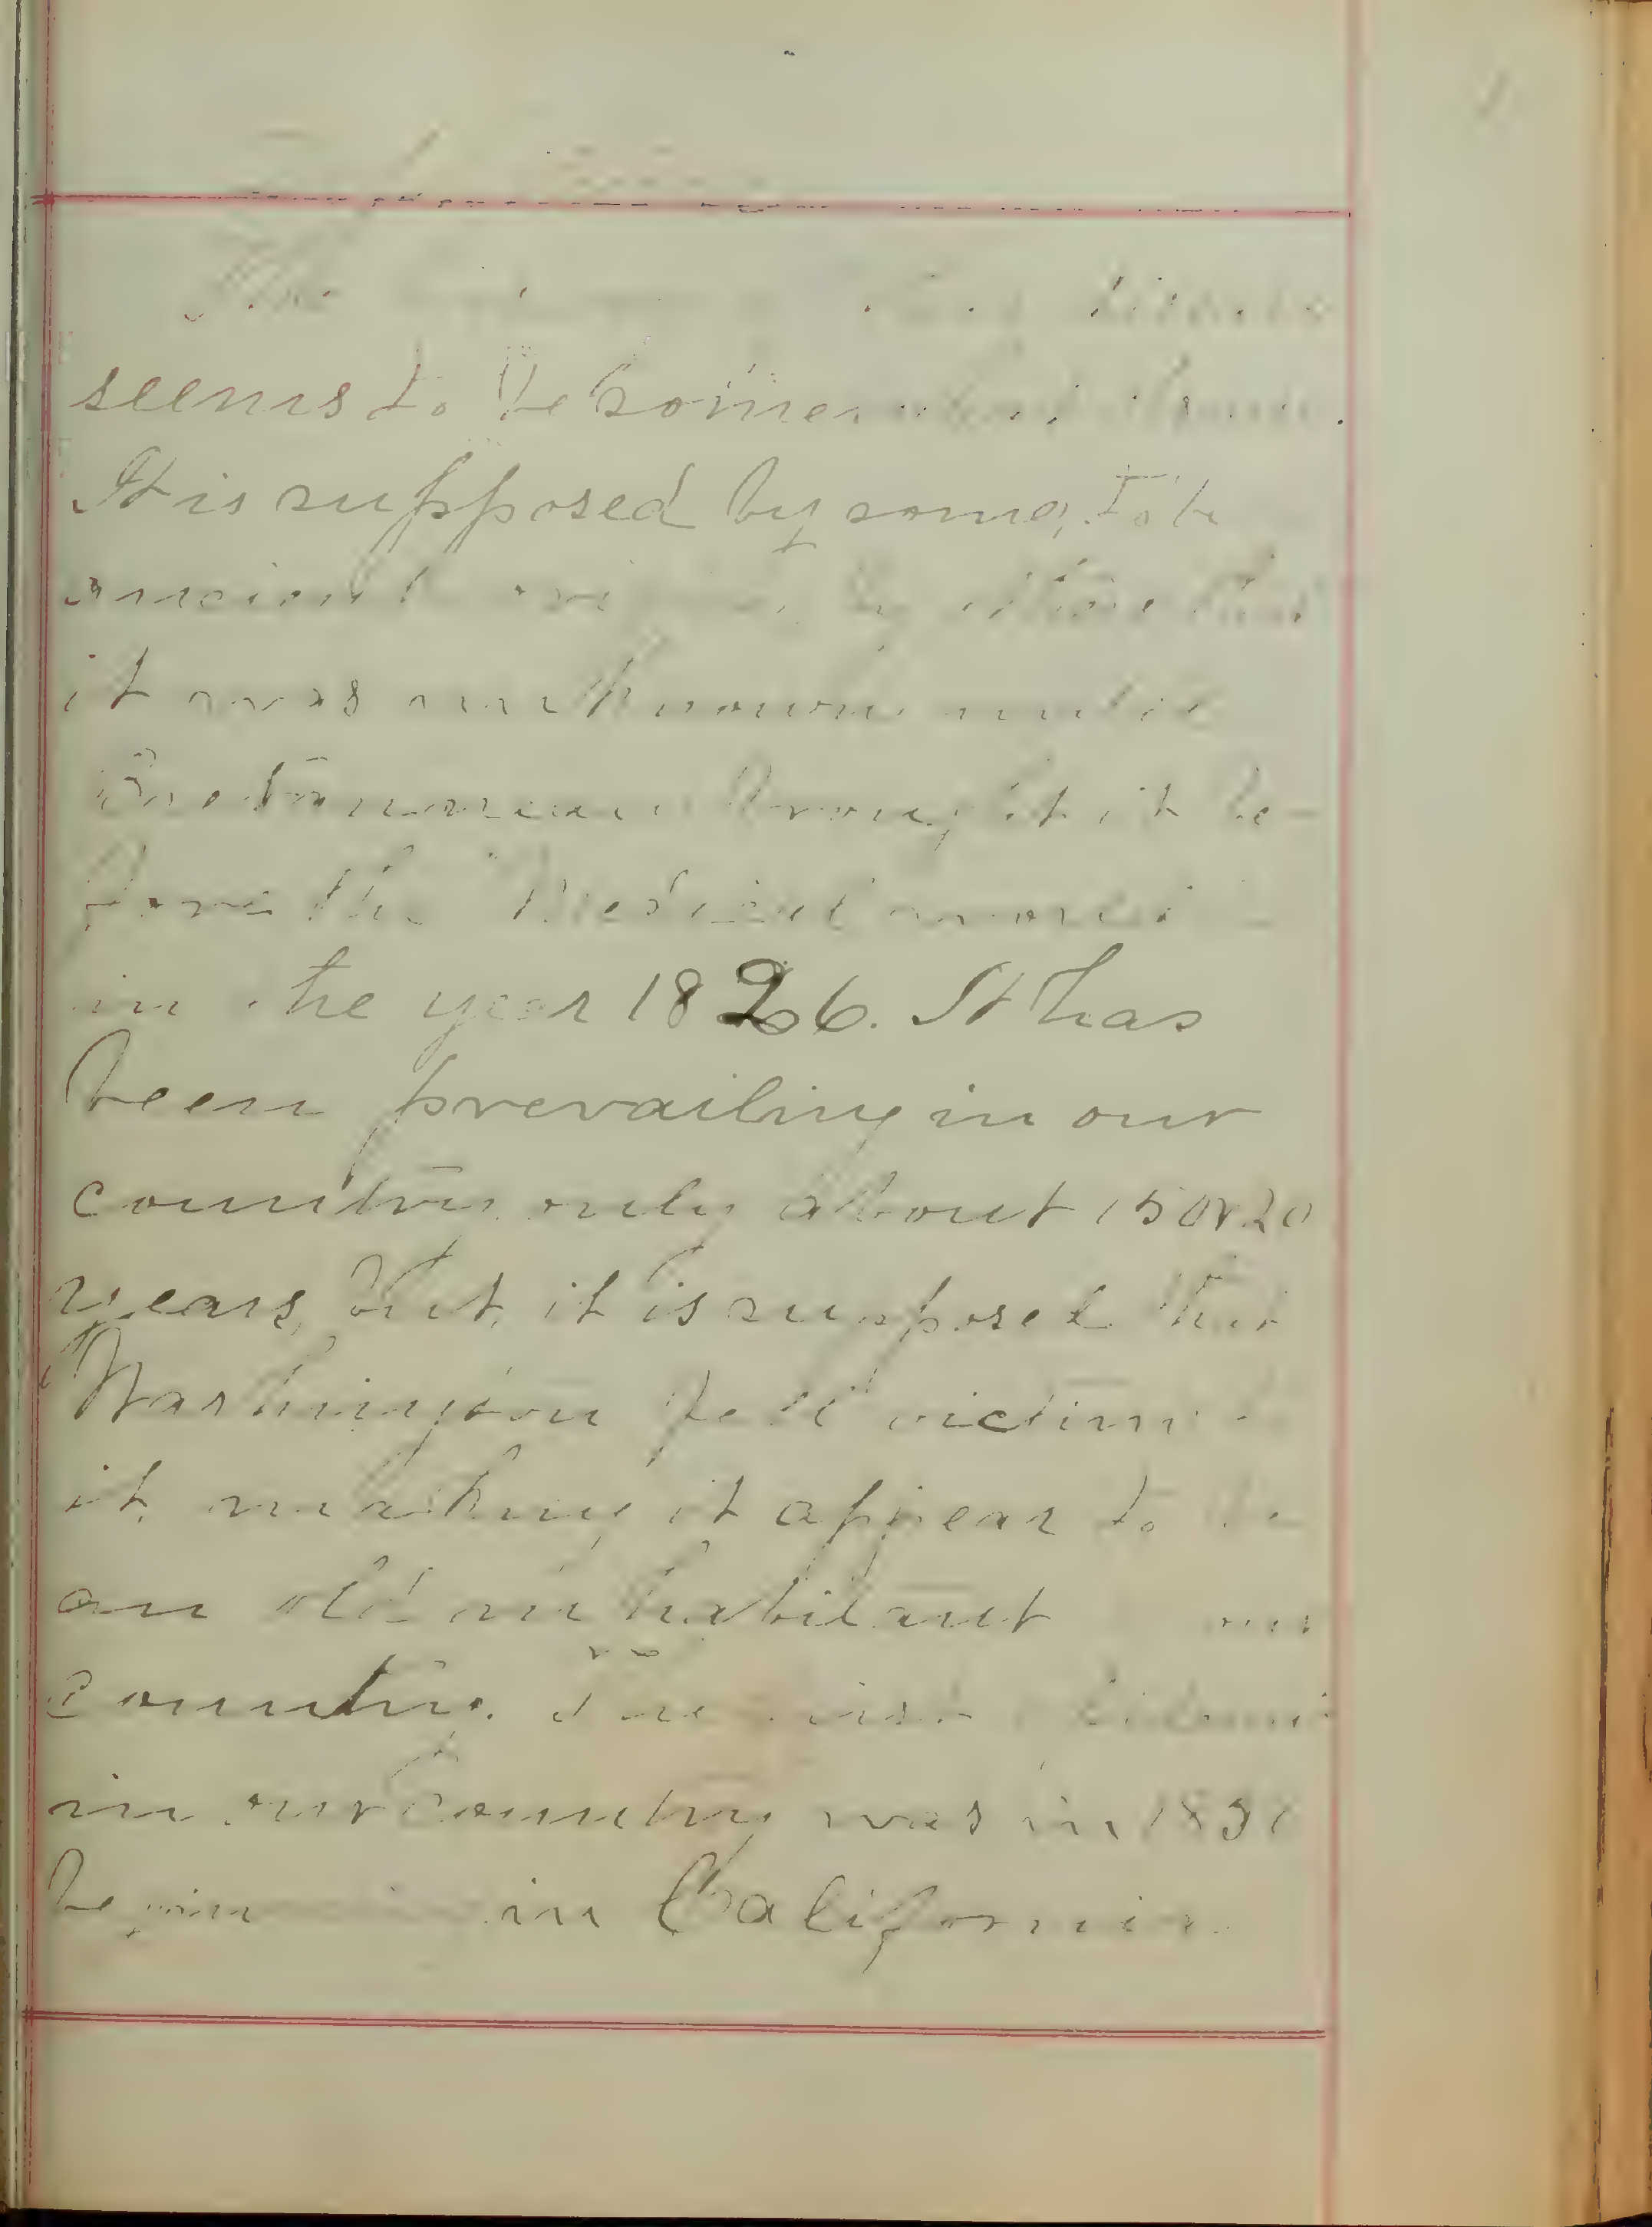 The disease
seems to be somewhat
It is supposed by some, to be
ancient by others that
it was unknown until
Bretonneau brought it be-
fore the Medical world
in the year 1826. It has
been prevailing in our
country only about 15 or 20
years, but it is supposed that
Washington fell victim
it, making it appear to be
an old inhabitant our
country. The first epidemic
in our country was in
in California.